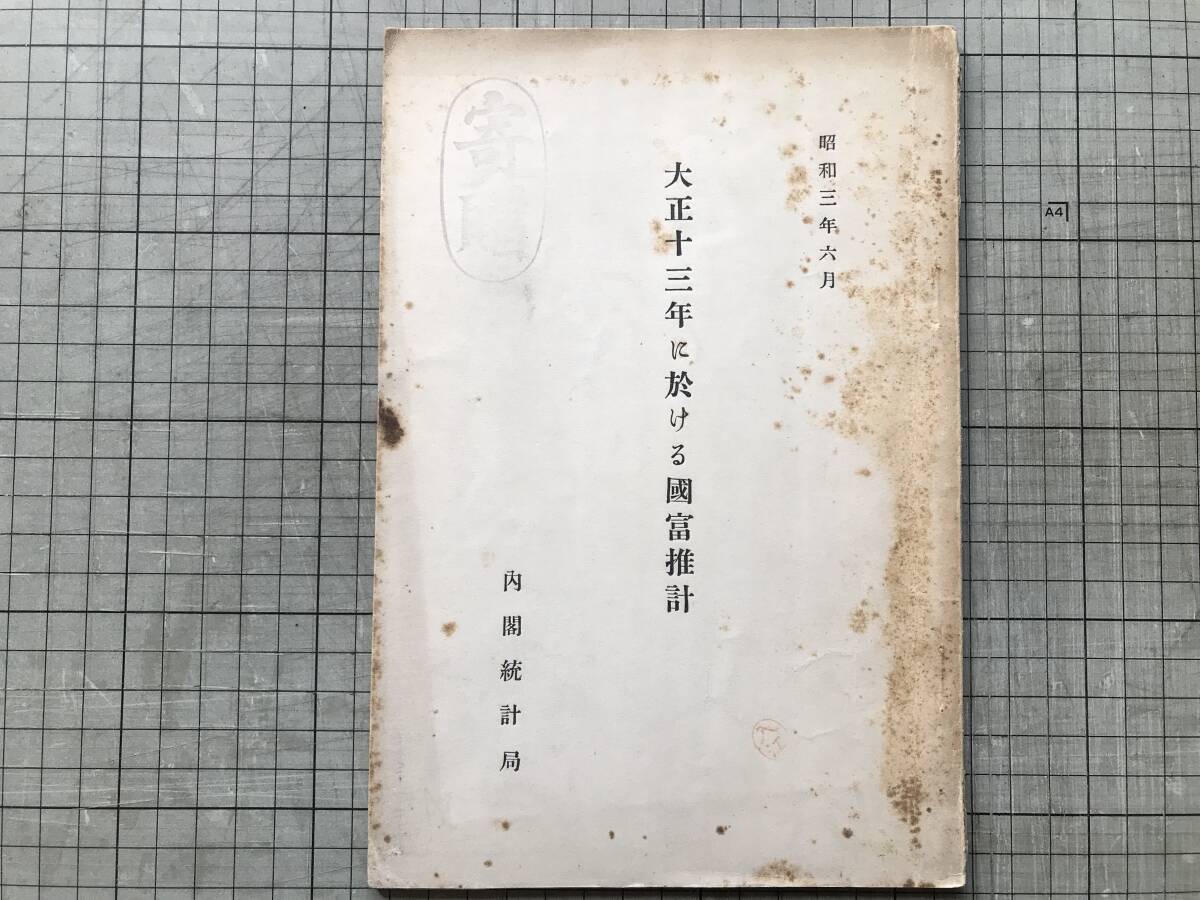 昭和三年六月
大正十三年に於ける國富推計
內閣統計局
寄贈
A4